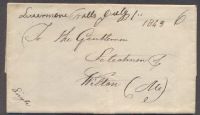 Livermore Falls July 1st 1843 6
To the Gentlemen
Selectmen of
Wilton (Me)
Single